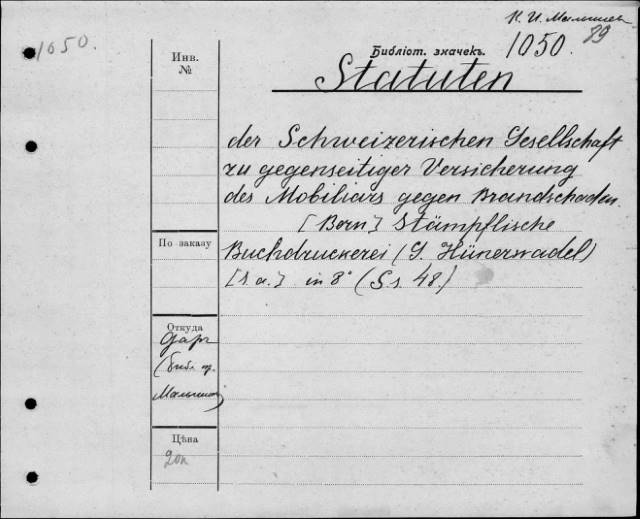 К. И. Малышев
1050.
89
Библіот. значекъ.
1050.
Инв.
№
Statuten
der Schweizerischen Gesellschaft
zu gegenseitiger Versicherung
des Mobiliars gegen Brandschaden.
[Bern] Stämpflische
По заказу
Buchdruckerei (G. Hünerwadel)
[s. a.] in 8° (S s. 48.)
Откуда
Даръ
(библ. пр.
Малышева)
Цѣна
20к